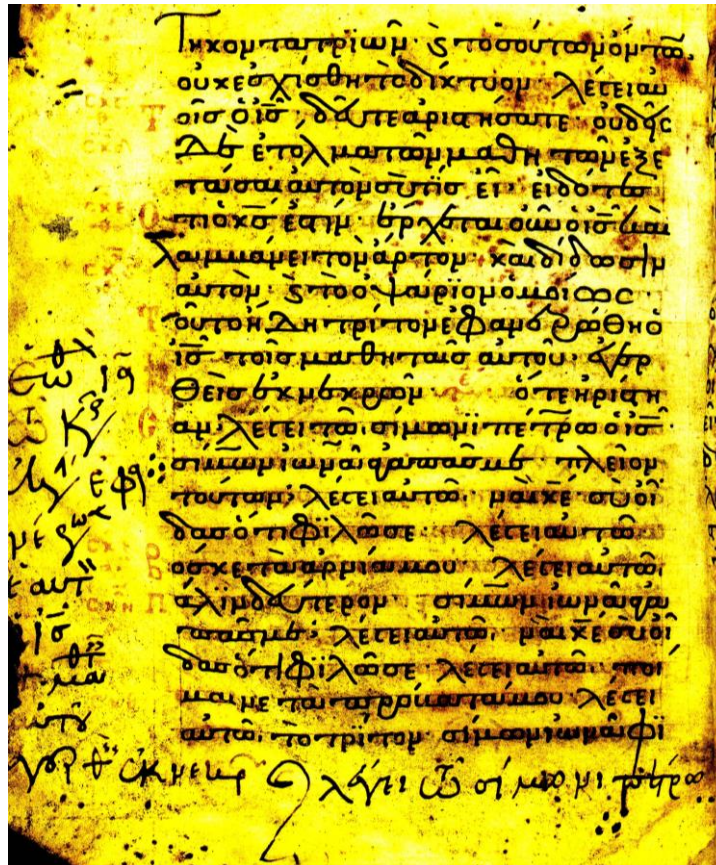 τηκοντατριῶν· ϛ τοσούτων ὄντω̅
οὐκ ἐσχίσθη τὸ δίκτυον· λέγει αὐ
τοῖς ὁ ι̅ς̅· δεῦτε ἀριστήσατε· οὐδεὶς
δὲ ἐτόλμα τῶν μαθητῶν ἐξε
τάσαι αὐτὸν σὺ τίς εἶ· εἰδότες
ὅτι ὁ κ̅ς̅ ἐστιν· ἔρχεται οὖν ὁ ι̅ς̅ καὶ
λαμβάνει τὸν ἄρτον· καὶ δίδωσιν
αὐτοῖς· ϛ τὸ ὀψάριον ὁμοίως·
τοῦτο ἤδη τρίτον ἐφανερώθη ὁ
ι̅ς̅ τοῖς μαθηταῖς αὐτοῦ· ἐγερ
θεὶς ἐκ νεκρῶν· ὅτε ἠρίστη
σαν· λέγει τῶ σίμωνι πέτρω ὁ ι̅ς̅
σίμων ἰωνᾶ ἀγαπᾶς με πλεῖον
τούτων· λέγει αὐτῶ· ναὶ κ̅ε̅ σὺ οἶ
δας ὅτι φιλῶ σε· λέγει αὐτῶ
βόσκε τὰ ἀρνία μου· λέγει αὐτῶ
πάλιν δεύτερον· σίμων ἰωνᾶ ἀγα
πᾶς με· λέγει αὐτῶ· ναὶ κ̅ε̅ σὺ οἶ
δας ὅτι φιλῶ σε· λέγει αὐτῶ· ποί
μαινε τὰ πρόβατά μου· λέγει
αὐτῶ τὸ τρίτον· σίμων ἰωνᾶ φι
λέγει τῶ σίμωνι πέτρω